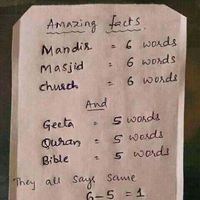 Amazing facts.
Mandir = 6 words
Masjid = 6 words
Church = 6 words
And
Geeta = 5 words
Quran = 5 words
Bible = 5 words
They all says same
6-5 = 1